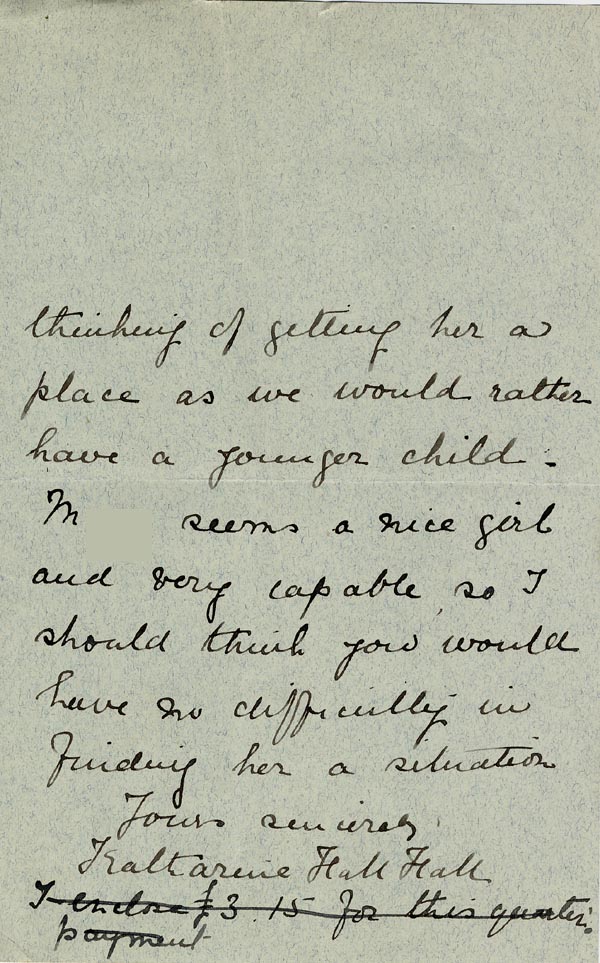 thinking of getting her a
place as we would rather
have a younger child.
M seems a nice girl
and very capable, so I
should think you would
have no difficulty in
finding her a situation
Yours sincerely
Katharine Hall Hall
I enclose £3.15 for this quarter's
payment